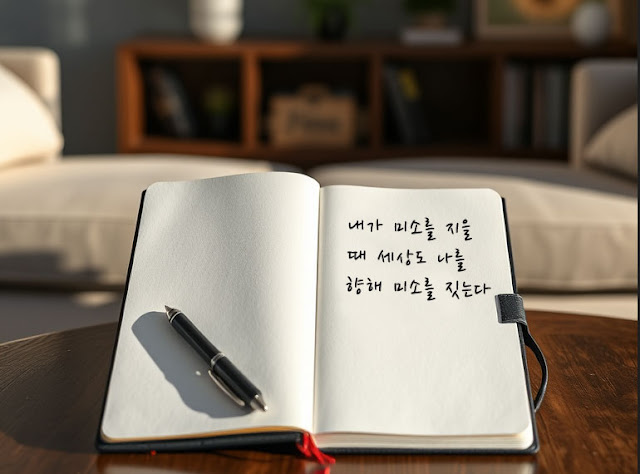 내가 미소를 지을
때 세상도 나를
향해 미소를 짓는다